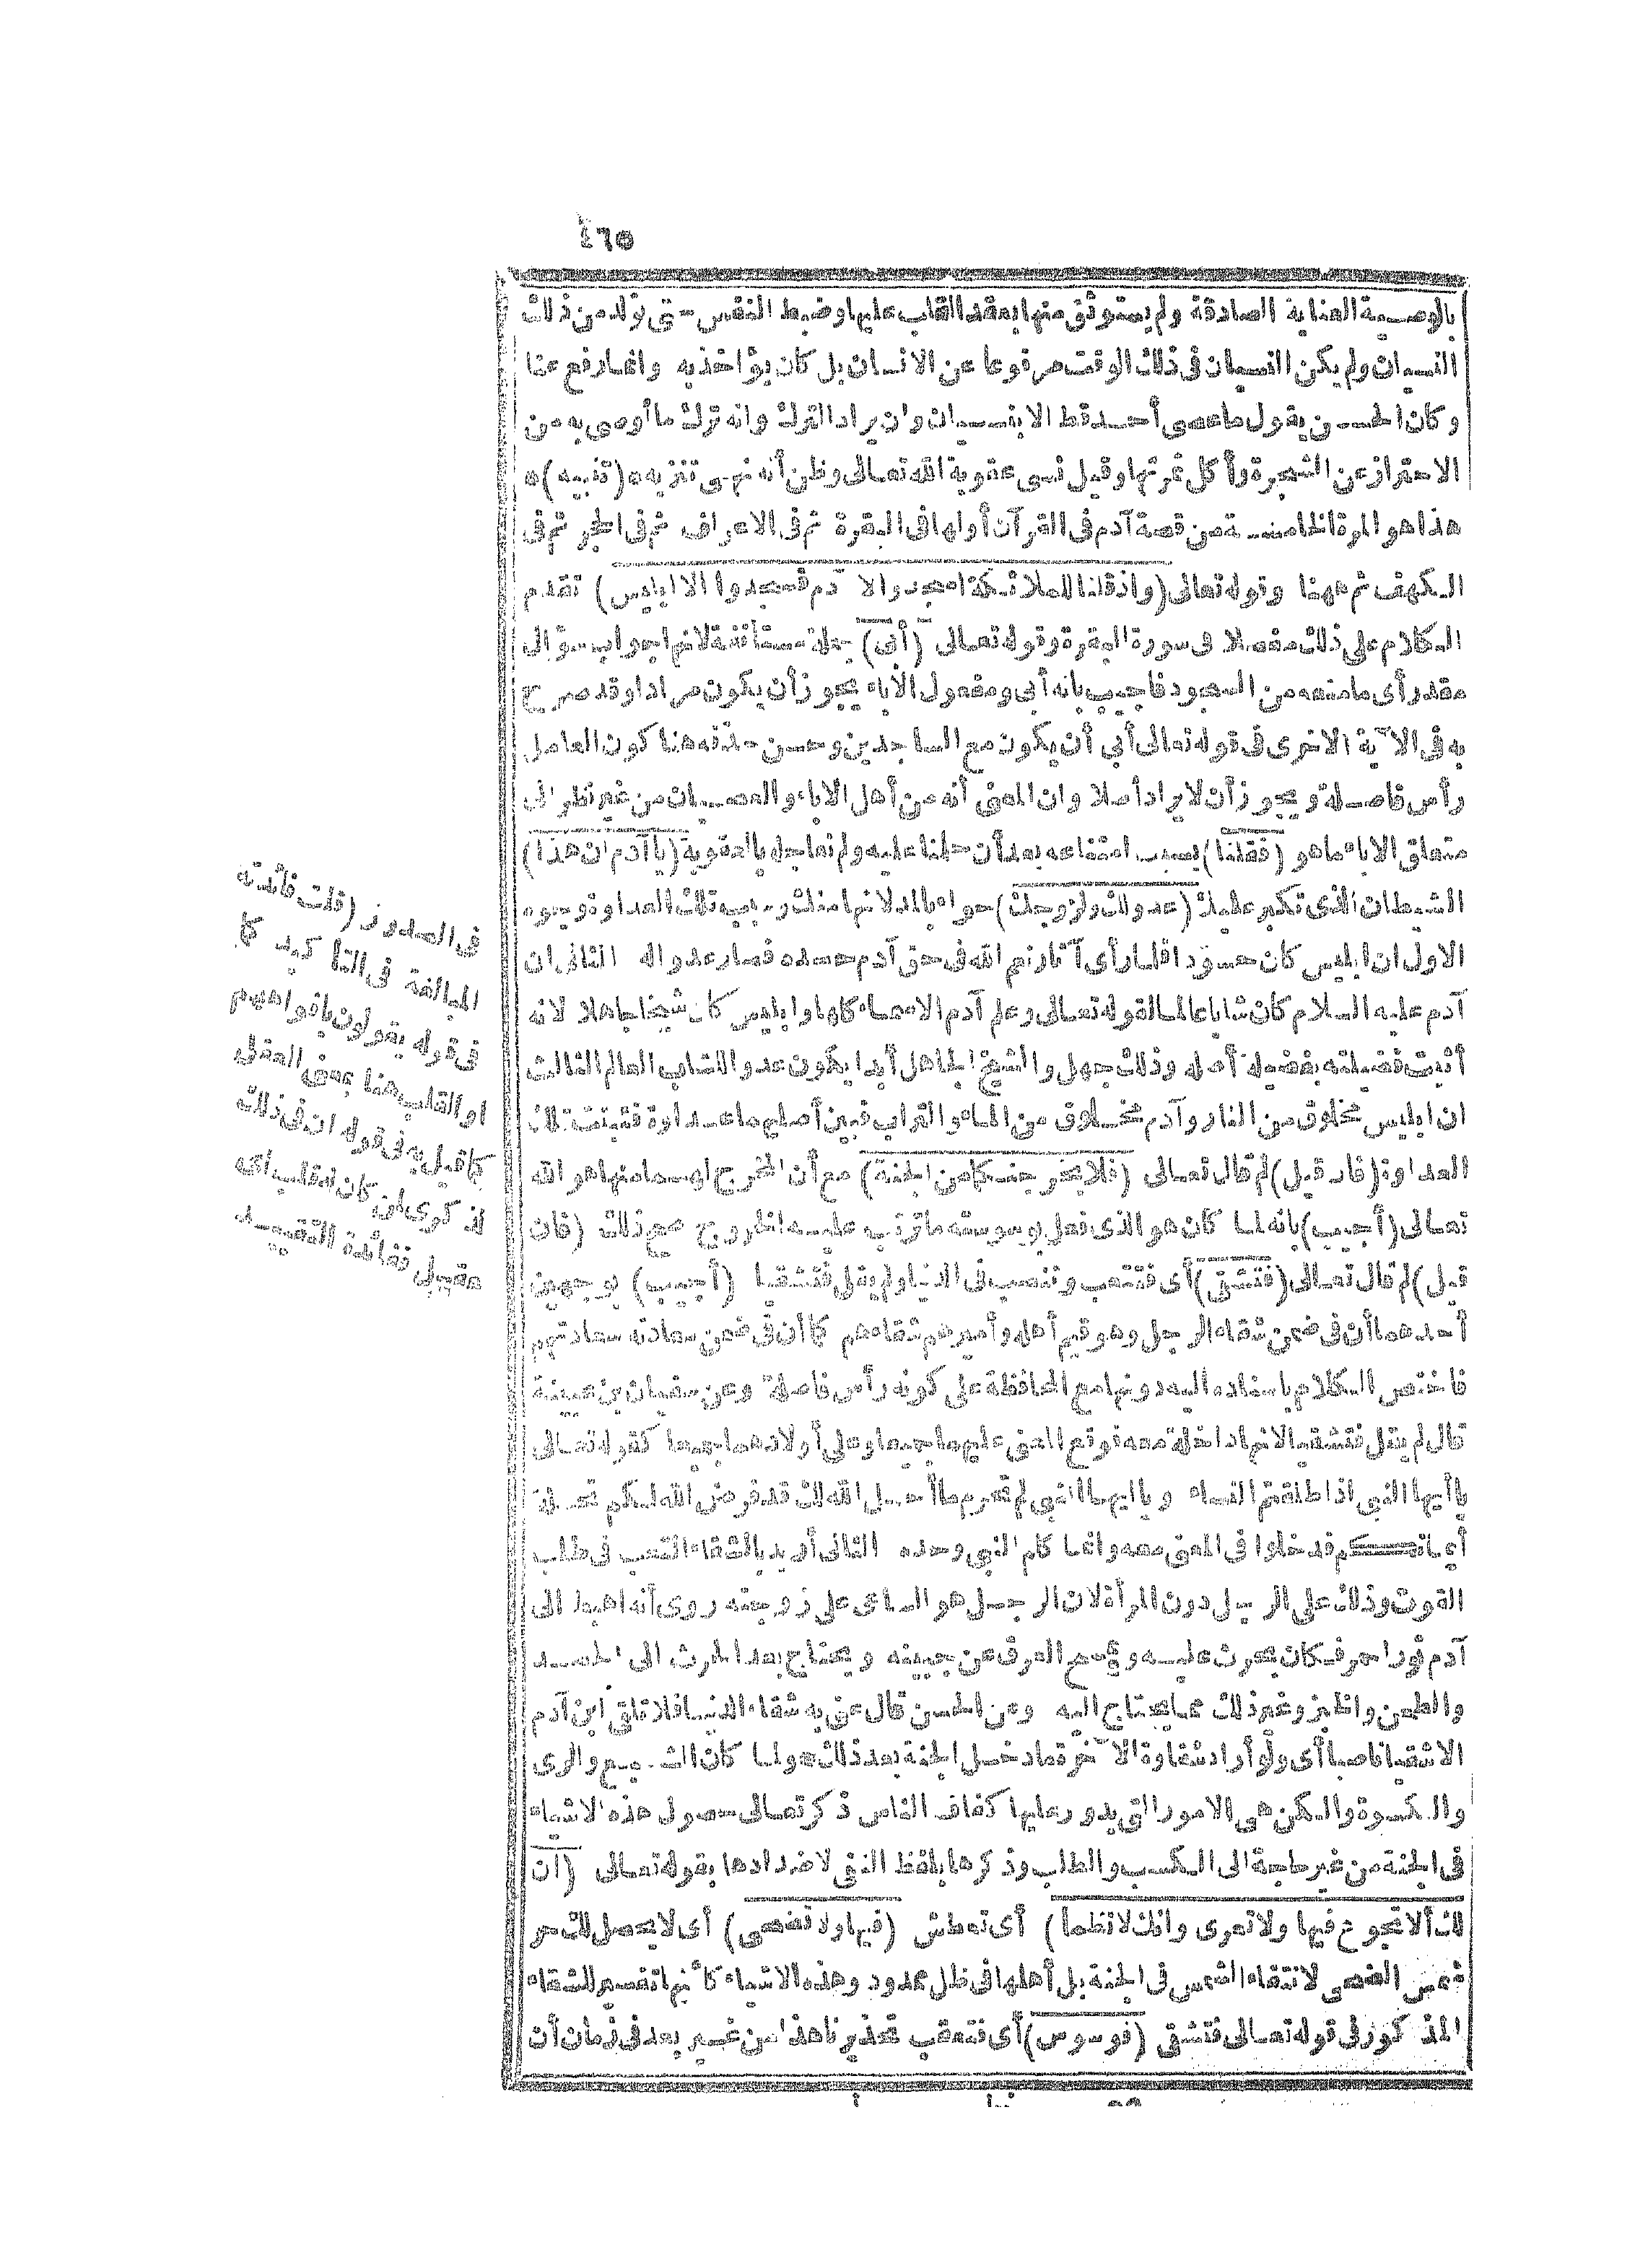 ٤٦٥
بالوصية العناية الصادقة ولم يستوثق منها بعقد القلب عليها وضبط النفس حتى تولد من ذلك
النسيان ولم يكن النسيان فى ذلك الوقت مرفوعا عن الانسان بل كان يؤاخذ به وانما رفع عنا
وكان الحسن يقول ما عصى أحد قط الا بنسيان وان يراد الترك وانه ترك ما أوصى به من
الاحتراز عن الشجرة وأكل ثمرتها وقيل نسى عقوبة الله تعالى وظن أنه نهى تنزيه ه (تنبيه) ه
هذا هو المرة الخامسة من قصة آدم فى القرآن أولها فى البقرة ثم فى الاعراف ثم فى الحجر ثم فى
الكهف ثم ههنا وقوله تعالى (واذ قلنا للملائكة اسجدوا لا دم فسجدوا الا ابليس) تقدم
الكلام على ذلك مفصلا فى سورة البقرة وقوله تعالى (أبى) جملة مستأنفة لانها جواب سؤال
مقدر أى ما منعه من السجود فاجيب بانه أبى ومفعول الاباء يجوز أن يكون مرادا وقد صرح
به فى الآية الاخرى فى قوله تعالى أبى أن يكون مع الساجدين وحسن حذفه هنا كون العامل
رأس فاصلة ويجوز أن لا يراد أصلا وان المعنى أنه من أهل الاباء والعصيان من غير نظر الى
متعلق الاباء ما هو (فقلنا) بسبب امتناعه بعد أن حلمنا عليه ولم نعاجله بالعقوبة (يا آدم ان هذا)
الشيطان الذى تكبر عليك (عدو لك ولزوجك) حواء بالمد لانها منك وسبب تلك العداوة وجوه
الاول ان ابليس كان حسودا فلما رأى آثار نعم الله فى حق آدم حسده فصار عدوا له الثانى ان
آدم عليه السلام كان شابا عالما لقوله تعالى وعلم آدم الاسماء كلها وابليس كان شيخا جاهلا لانه
أثبت فضيلته بفضيلة أصله وذلك جهل والشيخ الجاهل أبدا يكون عدو الشاب العالم الثالث
ان ابليس مخلوق من النار وآدم مخلوق من الماء والتراب فبين أصليهما عداوة فثبتت تلك
العداوة (فان قيل) لم قال تعالى (فلا يخرجنكما من الجنة) مع أن المخرج لهما منها هو الله
تعالى (أجيب) بانه لما كان هو الذى فعل بوسوسته ما ترتب عليه الخروج صح ذلك (فان
قيل) لم قال تعالى (فتشقى) أى فتتعب وتنصب فى الدنيا ولم يقل فتشقيا (أجيب) بوجهين
أحدهما أن فى ضمن شقاء الرجل وهو قيم أهله وأميرهم شقاءهم كما أن فى ضمن سعادته سعادتهم
فاختص الكلام باسناده اليه دونها مع المحافظة على كونه رأس فاصلة وعن سفيان بن عيينة
قال لم يقل فتشقيا لانها داخلة معه فوقع المعنى عليهما جميعا وعلى أولادهما جميعا كقوله تعالى
يا أيها النبى اذا طلقتم النساء ويا ايها النبى لم تحرم ما أحل الله لك قد فرض الله لكم تحلة
أيمانكم فدخلوا فى المعنى معه وانما كلم النبى وحده الثانى أريد بالشقاء التعب فى طلب
القوت وذلك على الرجل دون المرأة لان الرجل هو الساعى على زوجته روى أنه اهبط الى
آدم ثور احمر فكان يحرث عليه ويمسح العرق عن جبينه ويحتاج بعد الحرث الى الحصد
والطحن والخبز وغير ذلك مما يحتاج اليه وعن الحسن قال عنى به شقاء الدنيا فلا تلقى ابن آدم
الا شقيا ناصبا أى ولو أراد شقاوة الآخرة ما دخل الجنة بعد ذلك ه ولما كان الشبع والرى
والكسوة والسكن هى الامور التى يدور عليها كفاف الناس ذكر تعالى حصول هذه الاشياء
فى الجنة من غير حاجة الى الكسب والطلب وذكرها بلفظ النفى لاضدادها بقوله تعالى (ان
لك ألا تجوع فيها ولا تعرى وانك لا تظمأ) أى تعطش (فيها ولا تضحى) أى لا يحصل لك حر
شمس الضحى لانتفاء الشمس فى الجنة بل أهلها فى ظل ممدود وهذه الاشياء كأنها تفسير للشقاء
المذكور فى قوله تعالى فتشقى (فوسوس) أى فتعقب تحذيرنا هذا من غير بعد فى زمان أن
فى الصدور (قلت فائدته
المبالغة فى التأكيد كما
فى قوله يقولون بافواههم
او القلب هنا بمعنى العقل
كما قيل به فى قوله ان فى ذلك
لذكرى لمن كان له قلب اى
عقل ففائدة التقييد